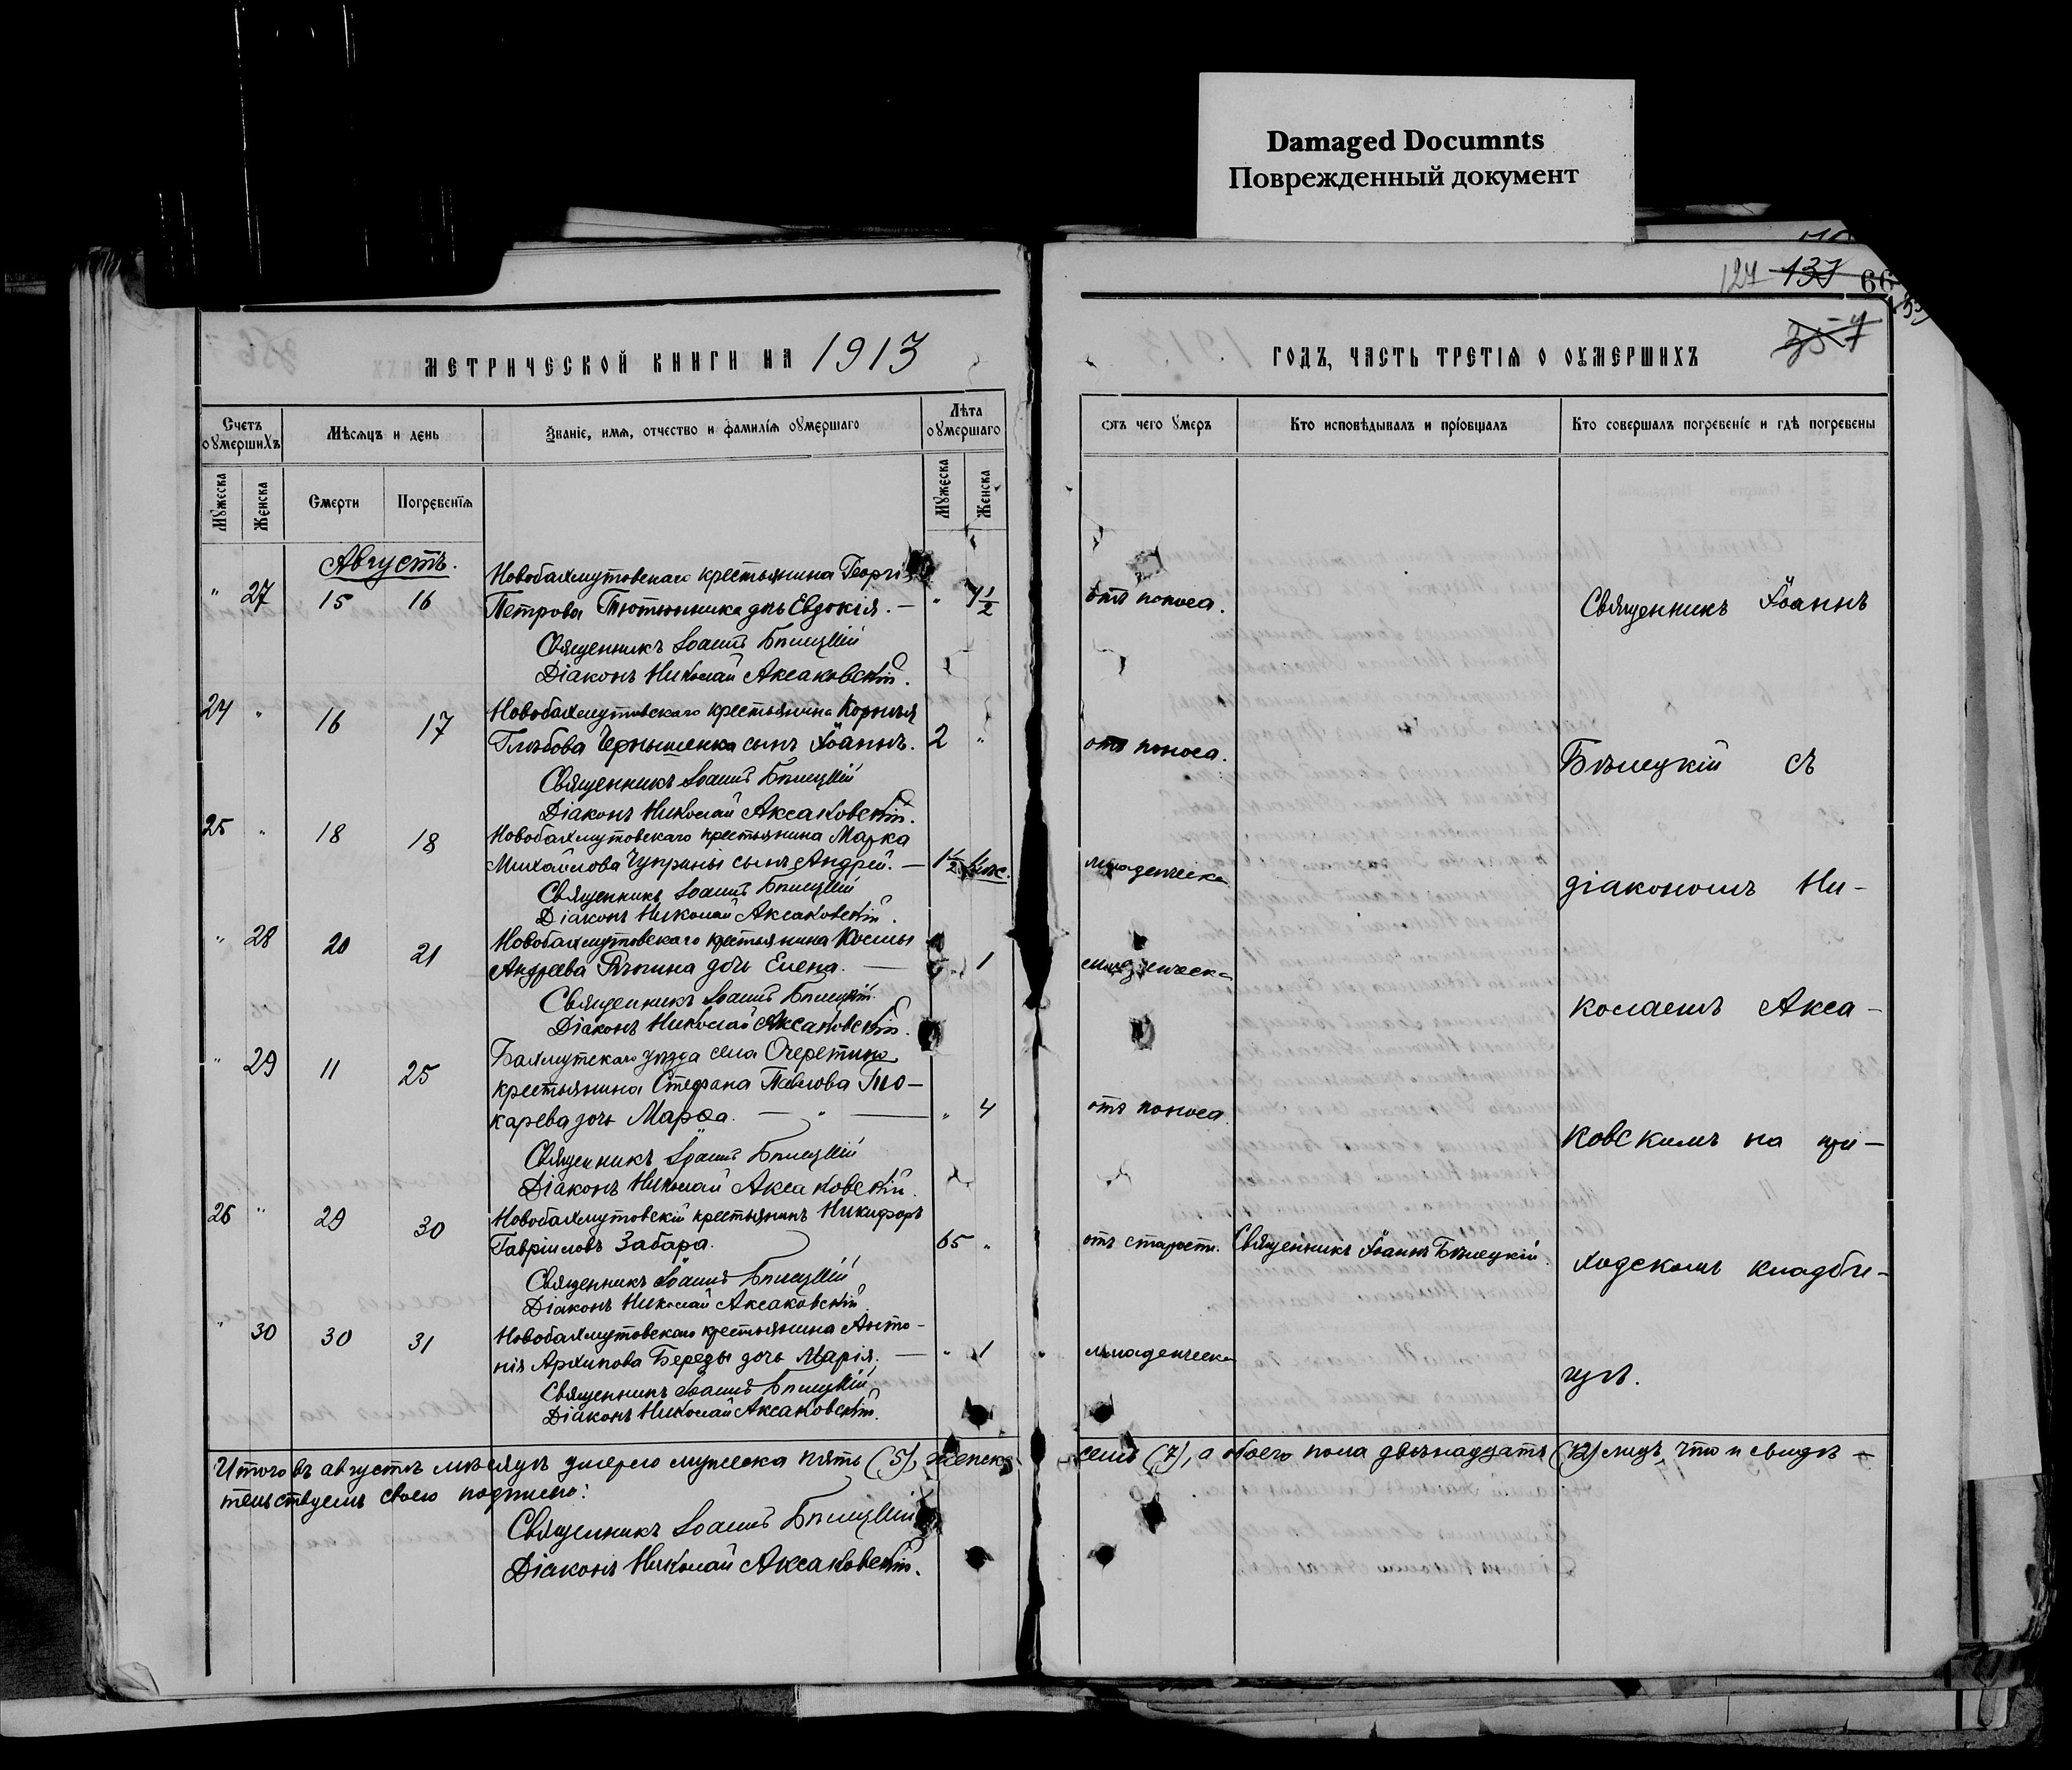 Damaged Documnts
Поврежденный документ
127 137 66
357
МЕТРИЧЕСКОЙ КНИГИ НА 1913
ГОДЪ, ЧАСТЬ ТРЕТІЯ О ОУМЕРШИХЪ
Счетъ оумершихъ
Мѣсяцъ и день
Званіе, имя, отчество и фамилія оумершаго
Лѣта оумершаго
отъ чего умеръ
Кто исповѣдывалъ и пріобщалъ
Кто совершалъ погребеніе и гдѣ погребены
Мужеска
Женска
Смерти
Погребенія
Мужеска
Женска
Августъ.
Новобахмутовскаго крестьянина Георгія
" 27 15 16 Петрова Тютюнника дчь Евдокія. — " 1/2 отъ поноса. Священникъ Іоаннъ
Священникъ Іоаннъ Бѣлецкій
Діаконъ Николай Аксаковскій.
24 " 16 17 Новобахмутовскаго крестьянина Корнилія
Глѣбова Чернышенка сынъ Іоаннъ. 2 " отъ поноса. Бѣлецкій съ
Священникъ Іоаннъ Бѣлецкій
Діаконъ Николай Аксаковскій.
25 " 18 18 Новобахмутовскаго крестьянина Марка
Михайлова Чуприны сынъ Андрей. — 1/2 младенческа діакономъ Ни-
Священникъ Іоаннъ Бѣлецкій
Діаконъ Николай Аксаковскій.
" 28 20 21 Новобахмутовскаго крестьянина Космы
Андреева дочь Елена. — " 1 младенческа
Священникъ Іоаннъ Бѣлецкій колаемъ Акса-
Діаконъ Николай Аксаковскій.
" 29 11 25 Бахмутскаго уѣзда села Очеретина
крестьянина Стефана Павлова То-
карева дочь Марѳа. — " — " 4 отъ поноса. ковскимъ на при-
Священникъ Іоаннъ Бѣлецкій
Діаконъ Николай Аксаковскій.
26 " 29 30 Новобахмутовскій крестьянинъ Никифоръ
Гавріиловъ Забара. 65 " отъ старости. Священникъ Іоаннъ Бѣлецкій. ходскомъ кладби-
Священникъ Іоаннъ Бѣлецкій
Діаконъ Николай Аксаковскій.
" 30 30 31 Новобахмутовскаго крестьянина Анто-
нія Архипова Березы дочь Марія. — " 1 младенческа щѣ.
Священникъ Іоаннъ Бѣлецкій
Діаконъ Николай Аксаковскій.
Итого въ августѣ мѣсяцѣ умерло мужеска пять (5), женска семь (7), а обоего пола двѣнадцать (12) лицъ, что и свидѣ-
тельствуемъ своею подписью:
Священникъ Іоаннъ Бѣлецкій
Діаконъ Николай Аксаковскій.